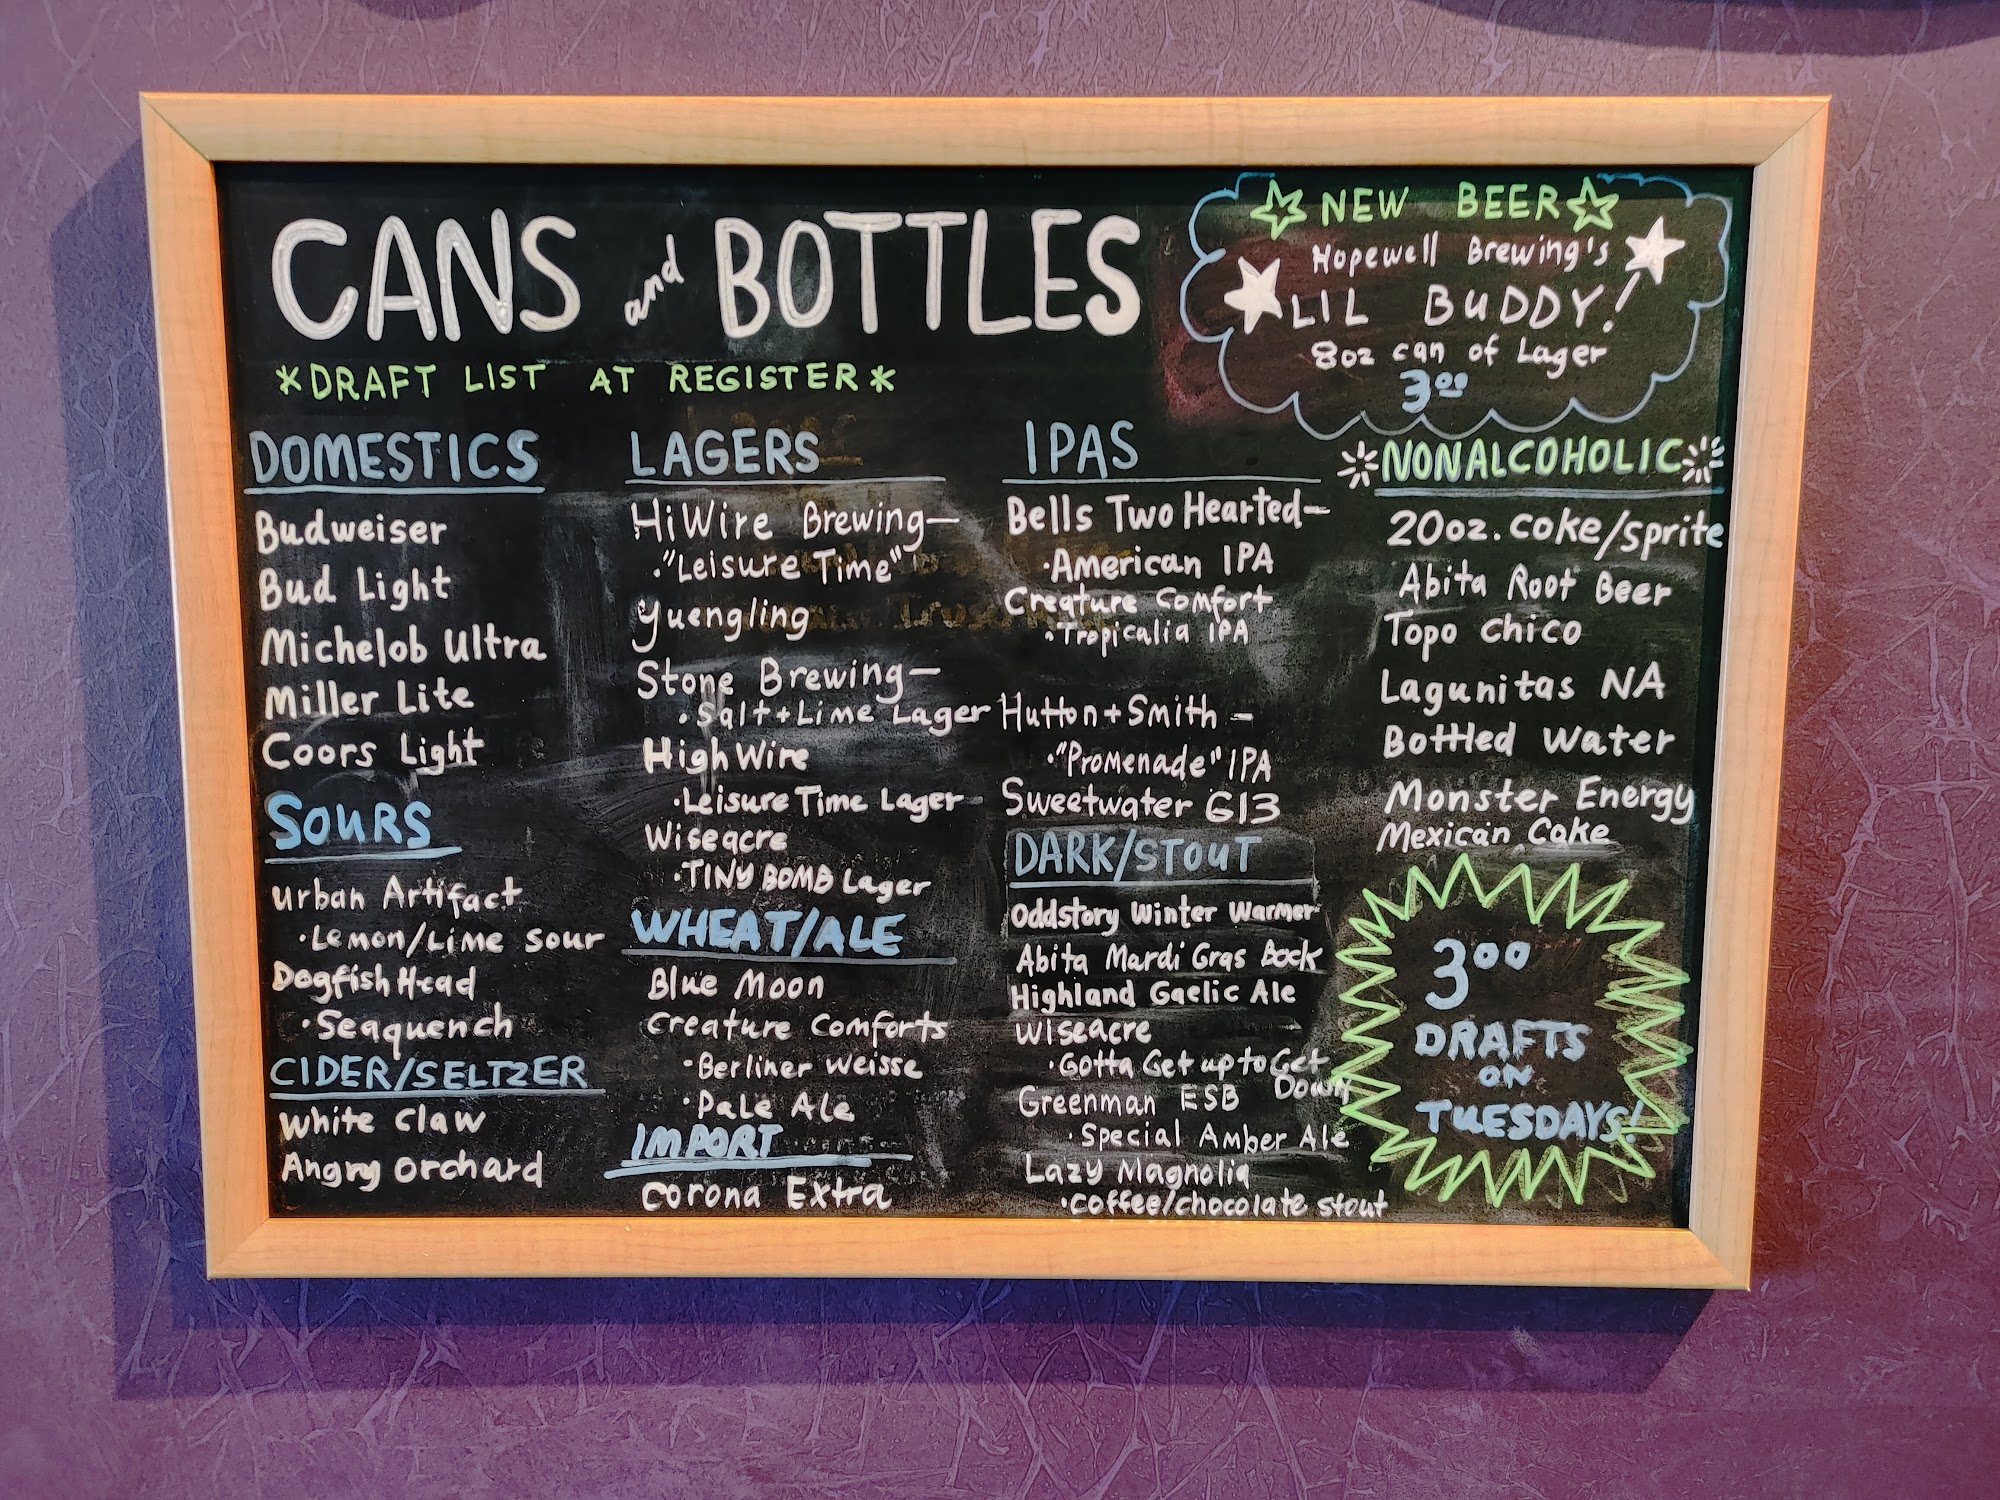 CANS and BOTTLES
*DRAFT LIST AT REGISTER*
NEW BEER
Hopewell Brewing's
LIL BUDDY!
8oz can of Lager
3⁰⁰
DOMESTICS
Budweiser
Bud Light
Michelob Ultra
Miller Lite
Coors Light
SOURS
Urban Artifact
·Lemon/Lime sour
Dogfish Head
·Seaquench
CIDER/SELTZER
White Claw
Angry Orchard
LAGERS
HiWire Brewing—
·"Leisure Time"
Yuengling
Stone Brewing—
·Salt+Lime Lager
High Wire
·Leisure Time Lager
Wiseacre
·TINY BOMB Lager
WHEAT/ALE
Blue Moon
Creature Comforts
·Berliner Weisse
·Pale Ale
IMPORT
Corona Extra
IPAS
Bells Two Hearted—
·American IPA
Creature Comfort
·Tropicalia IPA
Hutton+Smith—
·"Promenade" IPA
Sweetwater G13
DARK/STOUT
Oddstory Winter Warmer
Abita Mardi Gras Bock
Highland Gaelic Ale
Wiseacre
·Gotta Get up to Get
Down
Greenman ESB
·Special Amber Ale
Lazy Magnolia
·Coffee/chocolate stout
NONALCOHOLIC
20oz. Coke/Sprite
Abita Root Beer
Topo Chico
Lagunitas NA
Bottled Water
Monster Energy
Mexican Coke
3⁰⁰
DRAFTS
ON
TUESDAYS!